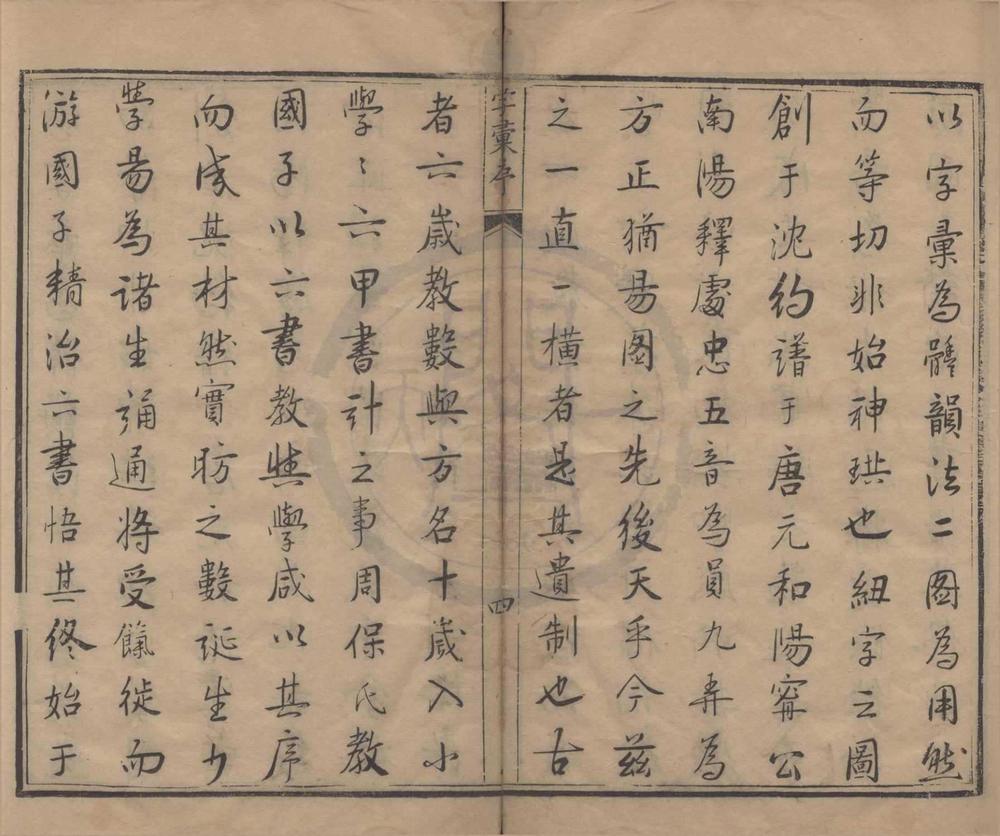 以字彙為體韻法二圖為用然
而等切非始神珙也紐字之圖
創于沈約譜于唐元和陽甯公
南陽釋處忠五音為員九弄為
方正猶易圖之先後天乎今茲
之一直一橫者是其遺制也古
字彙序
四
者六歲教數與方名十歲入小
學〻六甲書計之事周保氏教
國子以六書教樂學咸以其序
而成其材然實昉之數誕生少
學易為諸生通將受餼徙而
游國子精治六書悟其終始于